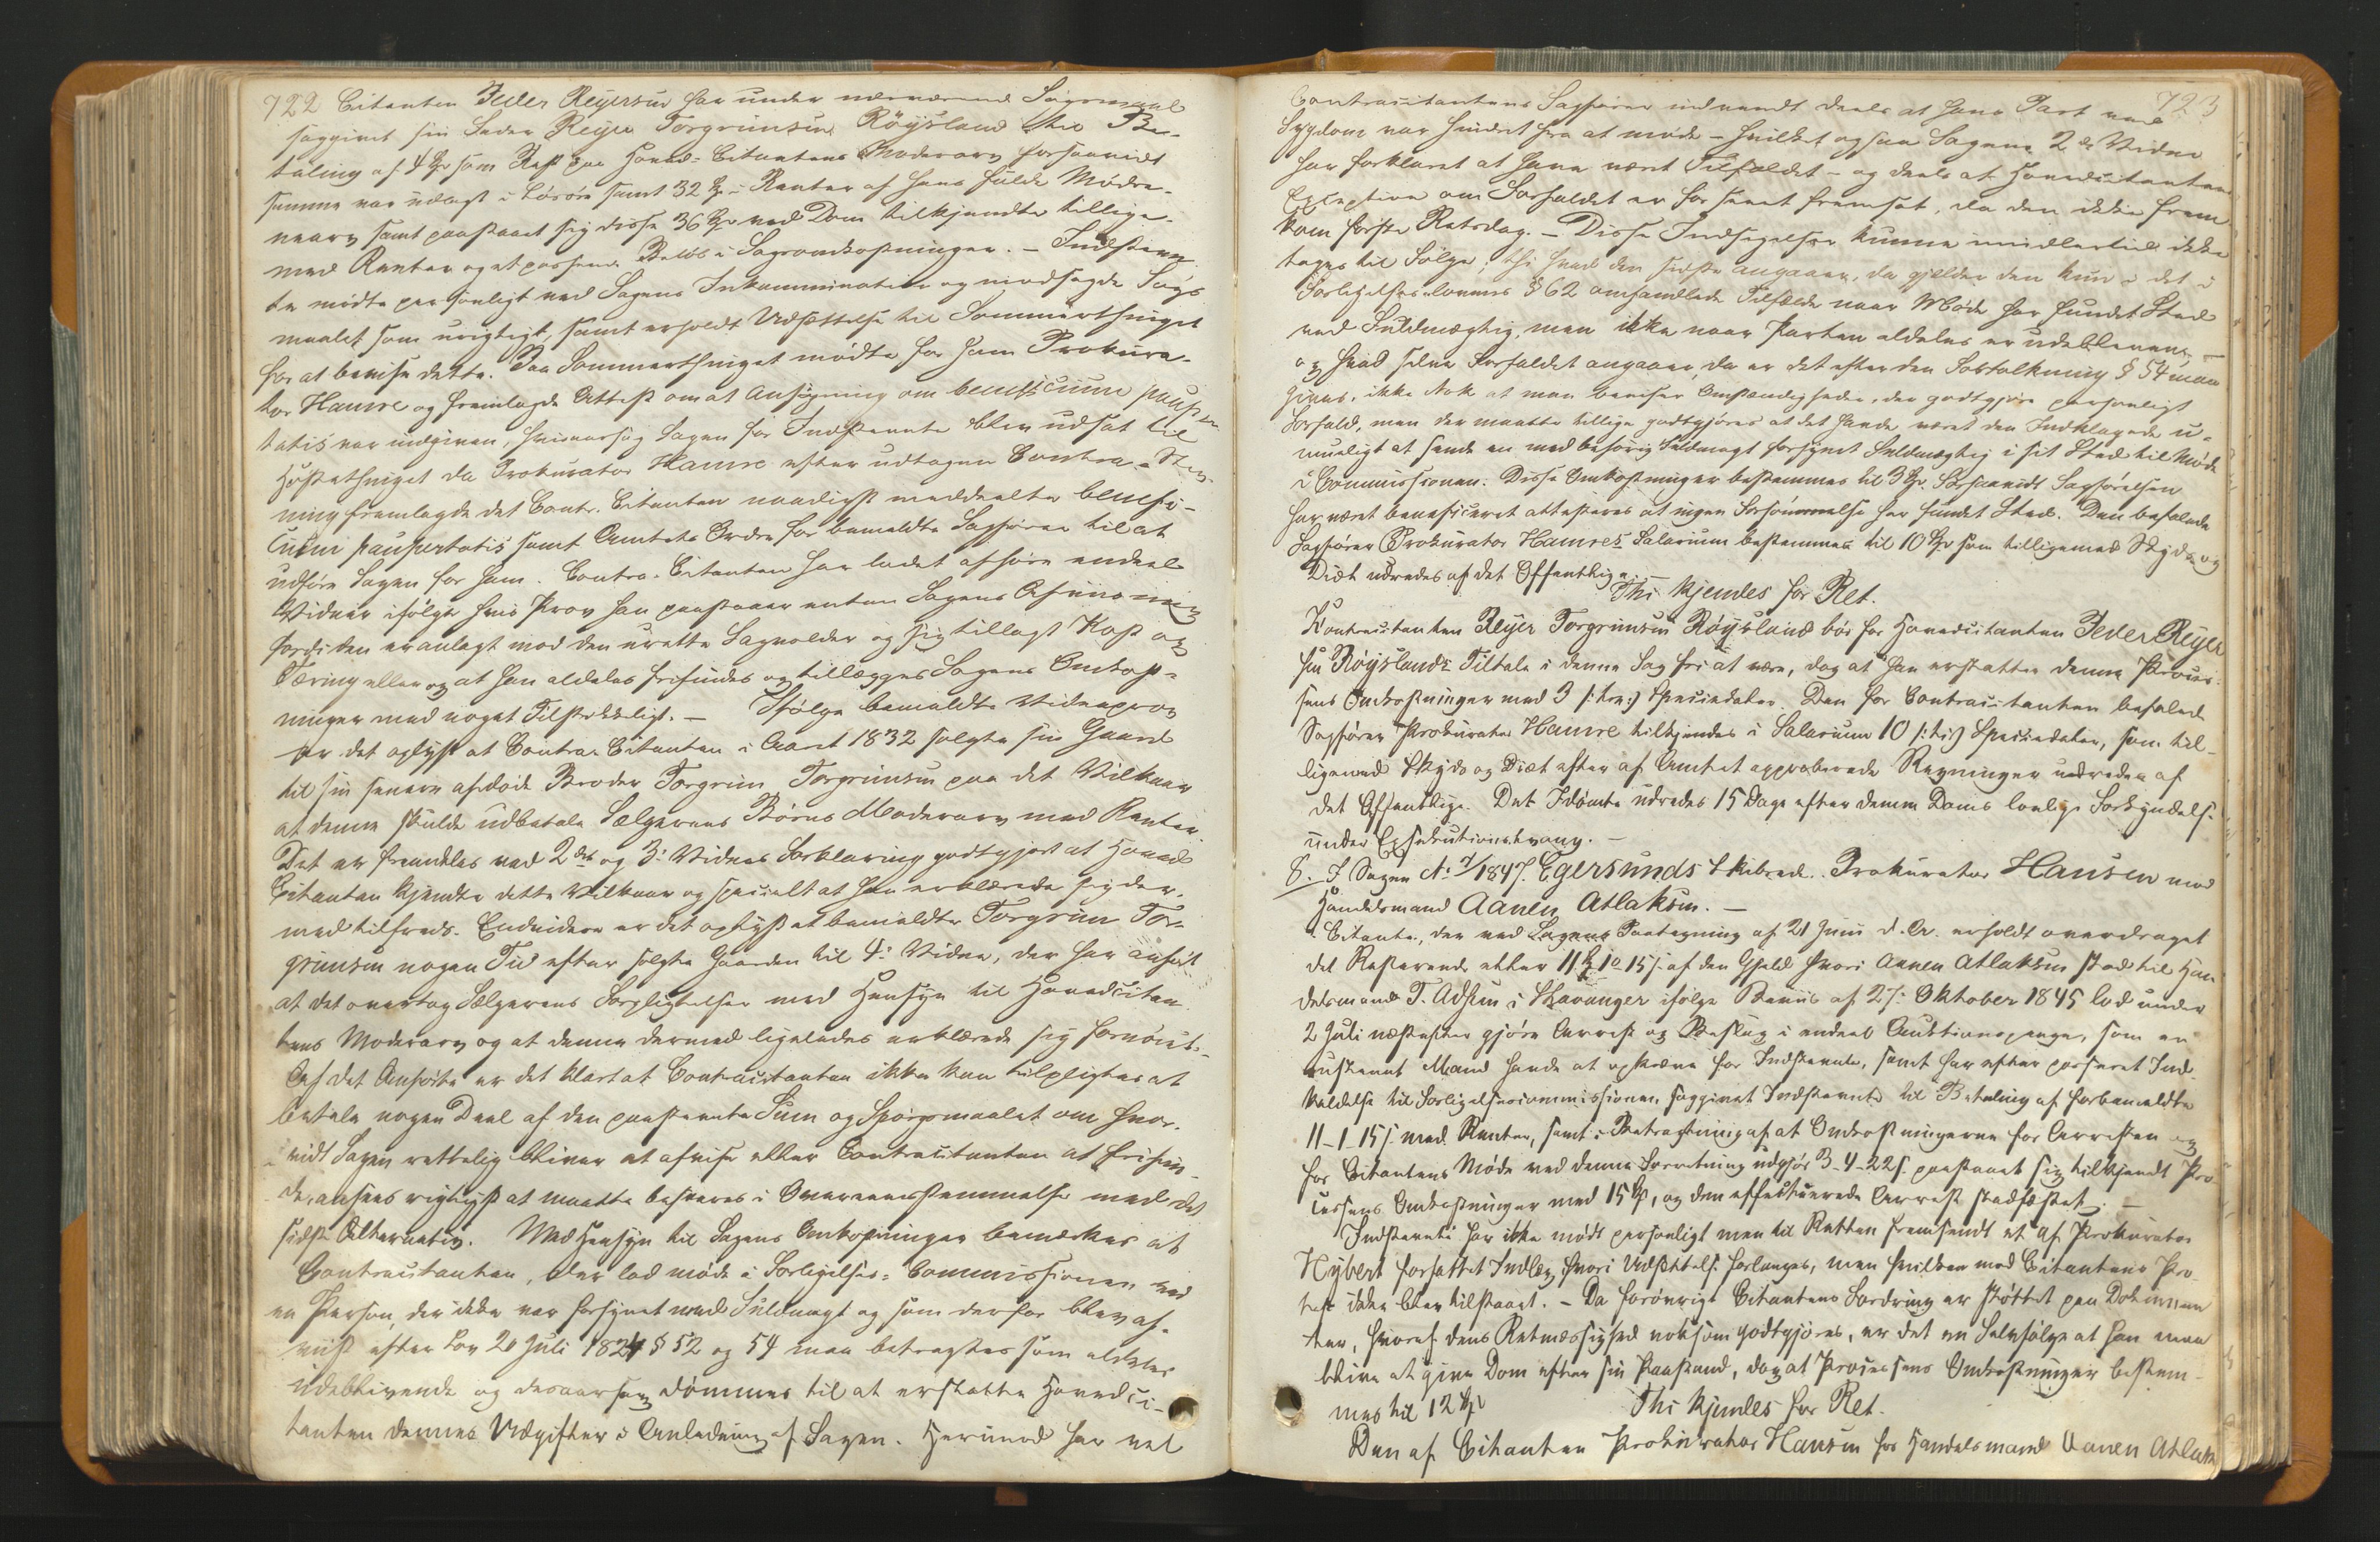 722 Citanten Peder Reyersen har under nærværende Søgsmaal
saggivet sin Fader Reyer Torgrimsen Røysland til Be-
taling af 4 Spd som Rest paa Hoved-Citantens Moderarv forsaavidt
samme var udlagt i Løsøre samt 32 Spd i Renter af hans fulde Mødre-
nearv samt paastaaet sig disse 36 Spd ved Dom tilkjendte tillige-
med Renter og et passende Beløb i Sagsomkostninger. – Indstevn-
te mødte personligt ved Sagens Inkamination og modsagde Søgs
maalet som urigtigt, samt erholdt Udsættelse til Sommerthinget
for at bevise dette. Paa Sommerthinget mødte for ham Prokura-
tor Hamre og fremlagde Attest om at Ansøgning om beneficium pauper
tatis var indgiven, hvisaarsag Sagen for Indstevnte blev udsat til
Høstethinget da Prokurator Hamre efter udtagen Contra-Stev-
ning fremlagde det Contra-Citanten naadigst meddeelte benefi-
cium paupertatis samt Amtets Ordre for bemeldte Sagfører til at
udføre Sagen for ham. Contra-Citanten har ladet afhøre endeel
Vidner ifølge hvis Prov han paastaaer enten Sagens Afviisning
fordi den er anlagt mod den urette Sagvolder og sig tillagt Kost og
Tæring eller og at han aldeles frifindes og tillægges Sagens Omkost-
ninger med noget Tilstrækkeligt. – Ifølge bemeldte Vidneprov
er det oplyst at Contra-Citanten i Aaret 1832 solgte sin Gaard
til sin senere afdøde Broder Torgrim Torgrimsen paa det Vilkaar
at denne skulde udbetale Sælgerens Børns Moderarv med Renter.
Det er fremdeles ved 2det og 3: Vidnes Forklaring godtgjort at Hoved
Citanten kjendte dette Vilkaar og specielt at han erklærede sig der-
med tilfreds. Endvidere er det oplyst at bemeldte Torgrim Tor-
grimsen nogen Tid efter solgte Gaarden til 4: Vidne, der har anført
at det overtog Sælgerens Forpligtelser med Hensyn til Hovedcitan
tens Moderarv og at denne dermed ligeledes erklærede sig fornøiet.
Af det Anførte er det klart at Contracitanten ikke kan tilpligtes at
betale nogen Deel af den paastevnte Sum og Spørgsmaalet om hvor-
vidt Sagen rettelig bliver at afvise eller Contracitanten at frifin-
de, ansees rigtigst at maatte besvares i Overeensstemmelse med det
sidste Alternativ. Med Hensyn til Sagens Omkostninger bemærkes at
Contracitanten, der lod møde i Forligelses-Commissionen ved
en Person, der ikke var forsynet med Fuldmagt og som derfor blev af-
viist efter Lov 20 Juli 1824 § 52 og 54 maa betragtes som aldeles
udeblivende og desaarsag dømmes til at erstatte Hovedci-
tanten dennes Udgifter i Anledning af Sagen. Herimod har vel
723
Contracitantens Sagfører indvendt deels at hans Part ved
Sygdom var hindret fra at møde – hvilket ogsaa Sagens 2det Vidne
har forklaret at have været Tilfældet – og deels at Hovedcitantens
Exception om Forfaldet er for seent fremsat, da den ikke frem
kom første Retsdag. – Disse Indsigelser kunne imidlertid ikke
tages til Følge; thi hvad den sidste angaaer, da gjelder den kun i det i
Forligelseslovens § 62 omhandlede Tilfælde naar Møde har fundet Sted
ved Fuldmægtig, men ikke naar Parten aldeles er udebleven; –
og hvad selve Forfaldet angaaer, da er det efter den Fortolkning § 54 maa
gives, ikke Nok at man beviser Omstændigheder, der godtgjøre personligt
Forfald, men der maatte tillige godtgjøres at det havde været den Indklagede u-
mueligt at sende en med behørig Fuldmagt forsynet Fuldmægtig i sit Sted til Møde
i Commissionen. Disse Omkostninger bestemmes til 3 Spd. Forsaavidt Sagførelsen
har været beneficeret attesteres at ingen Forsømmelse har fundet Sted. Den befalede
Sagfører Prokurator Hamres Salarium bestemmes til 10 Spd som tilligemed Skyds og
Diæt udredes af det Offentlige. –
Thi kjendes for Ret.
Kontracitanten Reyer Torgrimsen Røysland bør for Hovedcitanten Peder Reyer
sen Røyslands Tiltale i denne Sag fri at være, dog at han erstatter denne Proces-
sens Omkostninger med 3 /:tre:/ Speciedaler. Den for Contracitanten befalede
Sagfører Prokurator Hamre tilkjendes i Salarium 10 /:ti:/ Speciedaler, som til-
ligemed Skyds og Diæt efter af Amtet approberede Regninger udredes af
det Offentlige. Det Idømte udredes 15 Dage efter denne Doms lovlige Forkyndelse
under Exsekutionstvang. –
8. I Sagen No 7/1847. Egersunds Skibrede. Prokurator Hansen mod
Handelsmand Aanen Atlaksen. –
Citanten, der ved Paategning af 21 Juni d. A. erholdt overdraget
det Resterende etter 11 Spd 1 o 15 s af den Gjeld hvori Aanen Atlaksen stod til Han
delsmand T. Adsen i Stavanger ifølge Beviis af 27: Oktober 1845 lod under
2 Juli næstefter gjøre Arrest og Beslag i endeel Auktionspenge, som en
ustevnt Mand havde at opkræve for Indstevnte, samt har efter passeret Ind-
kaldelse til Forligelsescommissionen saggivet Indstevnte til Betaling af forbemeldte
11–1–15 s med Renter, samt i Betragtning af at Omkostningerne for Arresten og
for Citantens Møde ved denne Forretning udgjør 3–4–22 s paastaaet sig tilkjendt Pro
cessens Omkostninger med 15 Spd, og den effektuerede Arrest stadfæstet. –
Indstevnte har ikke mødt personligt men til Retten fremsendt et af Prokurator
Nyberg forfattet Indlæg hvori Udsættelse forlanges, men hvilken mod Citantens Pro-
test ikke blev tilstaaet. – Da forøvrigt Citantens Fordring er støttet paa Dokumen
ter, hvoraf dens Retmæssighed noksom godtgjøres, er det en Selvfølge at han maa
blive at give Dom efter sin Paastand, dog at Processens Omkostninger bestem-
mes til 12 Spd
Thi kjendes for Ret.
Den af Citanten Prokurator Hansen hos Handelsmand Aanen Atlak